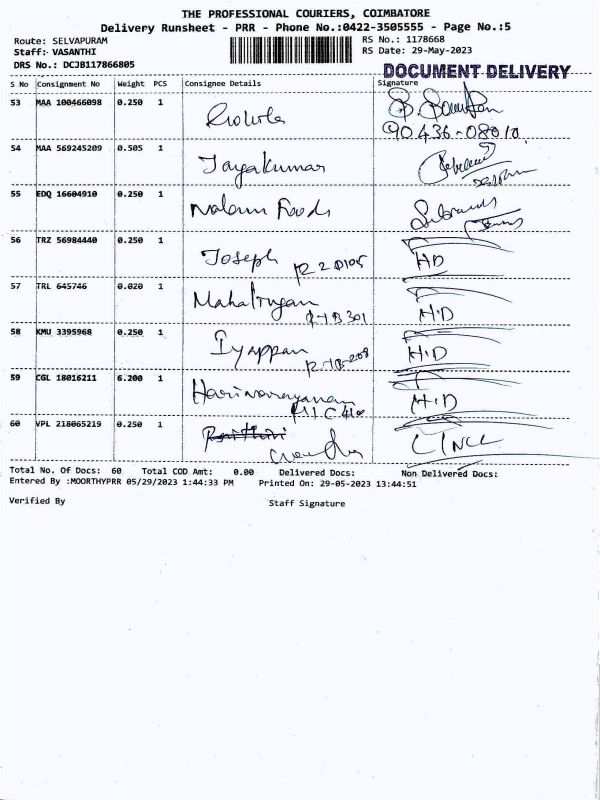 THE PROFESSIONAL COURIERS, COIMBATORE
Delivery Runsheet - PRR - Phone No.:0422-3505555 - Page No.:5
Route: SELVAPURAM RS No.: 1178668
Staff: VASANTHI RS Date: 29-May-2023
DRS No.: DCJB117866805
DOCUMENT DELIVERY
S No Consignment No Weight PCS Consignee Details Signature
53 MAA 100466098 0.250 1
90436-08010
54 MAA 569245209 0.505 1 Jayakumar
55 EDQ 16604910 0.250 1 Foods
56 TRZ 56984440 0.250 1 Joseph HD
57 TRL 645746 0.020 1 H·D
58 KMU 3395968 0.250 1 Iyappan H·D
59 CGL 18016211 6.200 1 Harinarayanan H·D
60 VPL 218065219 0.250 1
Total No. Of Docs: 60 Total COD Amt: 0.00 Delivered Docs: Non Delivered Docs:
Entered By :MOORTHYPRR 05/29/2023 1:44:33 PM Printed On: 29-05-2023 13:44:51
Verified By Staff Signature